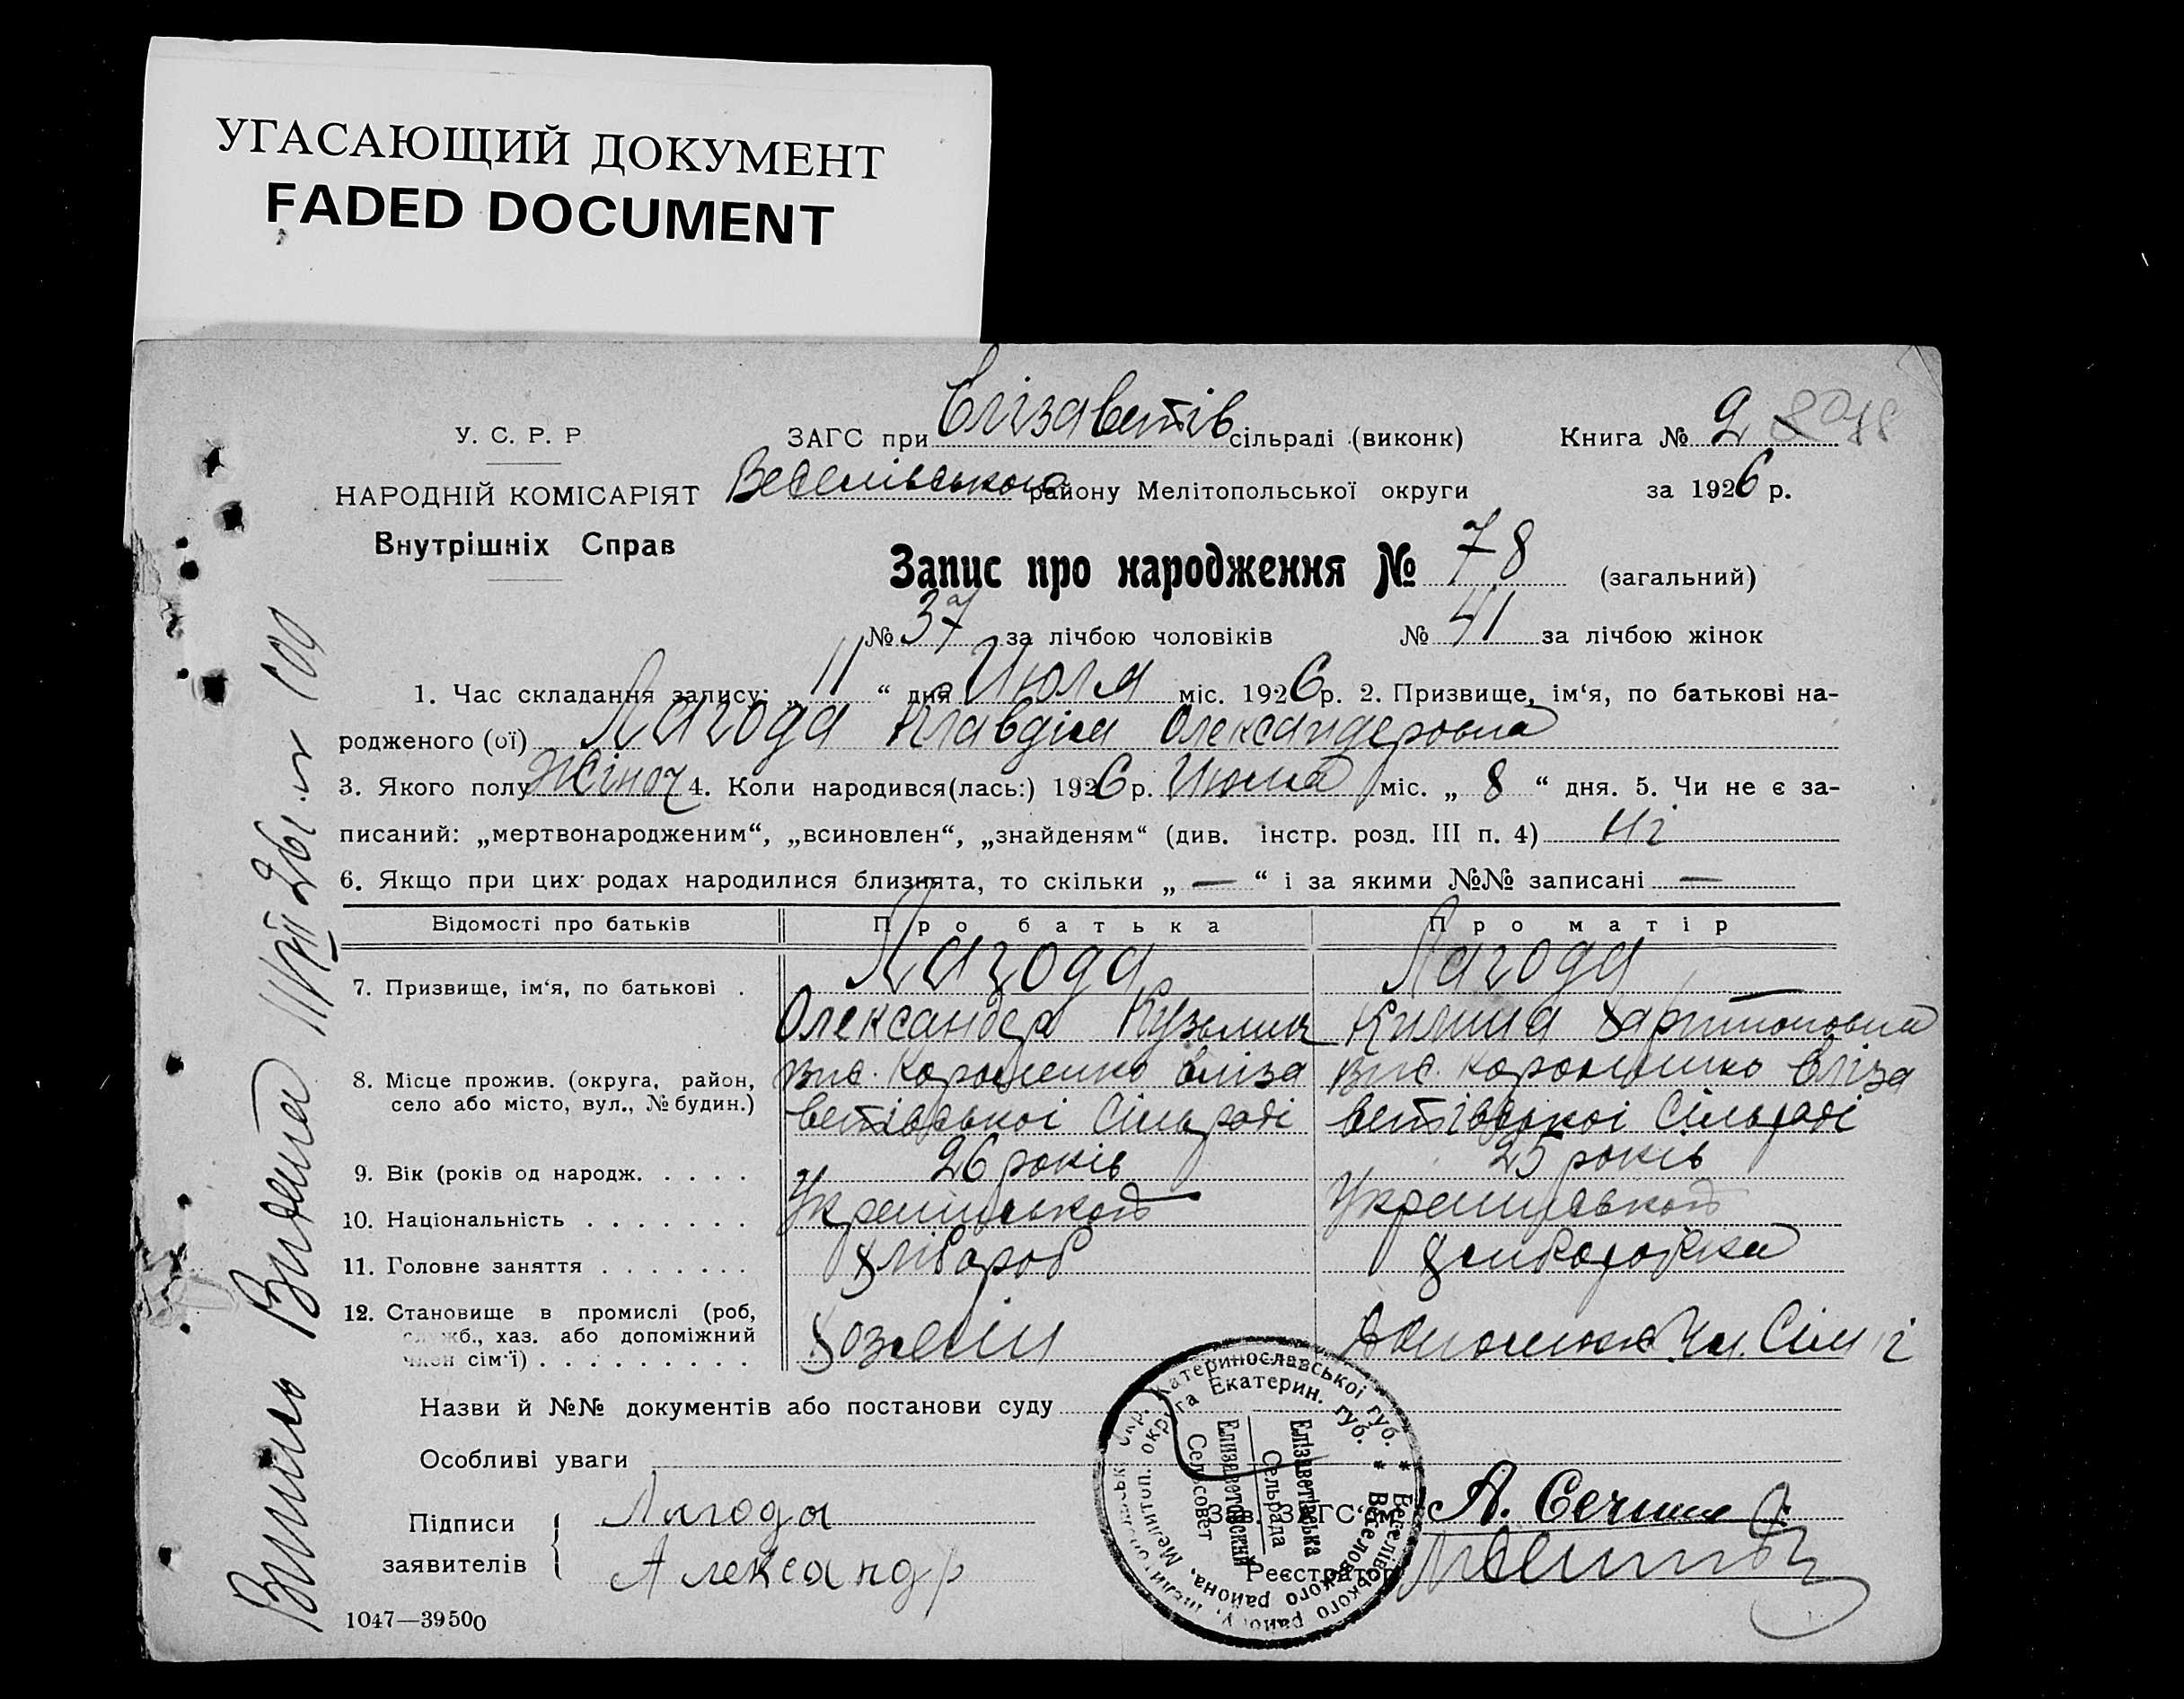 УГАСАЮЩИЙ ДОКУМЕНТ
FADED DOCUMENT
У. С. Р. Р
НАРОДНІЙ КОМІСАРІЯТ
Внутрішніх Справ
ЗАГС при Єлізаветів сільраді (виконк)
Книга № 2
Веселівського району Мелітопольської округи
за 1926 р.
Запис про народження № 78 (загальний)
№ 37 за лічбою чоловіків № 41 за лічбою жінок
1. Час складання запису: „ 11 “ дня Июля міс. 1926 р. 2. Призвище, ім‘я, по батькові на-
родженого (ої) Лагода Клавдія Олександеровна
3. Якого полу Жіноч 4. Коли народився(лась:) 1926 р. Июля міс. „ 8 “ дня. 5. Чи не є за-
писаний: „мертвонародженим“, „всиновлен“, „знайденям“ (див. інстр. розд. III п. 4) Ні
6. Якщо при цих родах народилися близнята, то скільки „ — “ і за якими №№ записані —
Відомості про батьків Про батька Про матір
7. Призвище, ім‘я, по батькові . Лагода Лагода
Олександер Кузьмич Харитоновна
8. Місце прожив. (округа, район, Єліза Єліза
село або місто, вул., № будин.) ветівської Сільраді ветівської Сільраді
9. Вік (років од народж. . . . . 26 років 25 років
10. Національність . . . . . . .
11. Головне заняття . . . . . . . Хлібороб Хліборобка
12. Становище в промислі (роб, Хозяїн Чл. Сімї
служб., хаз. або допоміжний
член сім‘ї) . . . . . . . . .
Назви й №№ документів або постанови суду
Особливі уваги
Підписи
заявителів
Лагода
Александр
Зав. ЗАГС‘ом А.
Реєстратор
Катеринославської губ. * Веселівського району,
округа Екатерин. губ. * Веселовского района, Мелитоп.
Елізаветівська
Сельрада
Елизаветовский
Сельсовет
1047—39500